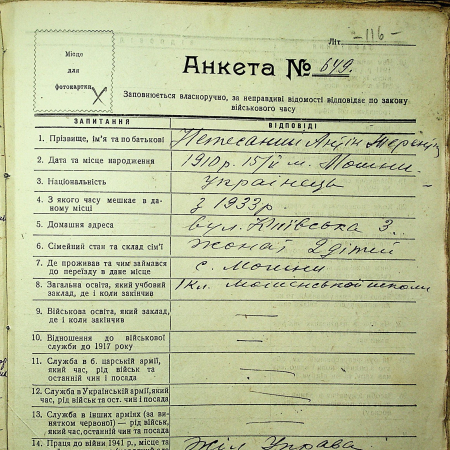 Літ. -116-
Місце
для
фотокартки
Анкета № 649.
Заповнюється власноручно, за неправдиві відомості відповідає по закону
військового часу
ЗАПИТАННЯ ВІДПОВІДІ
1. Прізвище, ім'я та по батькові Нетесаний Антін
2. Дата та місце народження 1910р. 15/IV м. Мошни.
3. Національність Українець
4. З якого часу мешкає в да-
ному місці з 1933р.
5. Домашня адреса вул. Київська 3.
6. Сімейний стан та склад сім'ї жонат 2 дітей
7. Де проживав та чим займався
до переїзду в дане місце с. Мошни
8. Загальна освіта, який учбовий
заклад, де і коли закінчив 1 кл. Мошенської школи
9. Військова освіта, який заклад,
де і коли закінчив
10. Відношення до військової
служби до 1917 року
11. Служба в б. царській армії,
який час, рід військ та
останній чин і посада
12. Служба в Українській армії, який
час, рід військ та ост. чин і посада
13. Служба в інших арміях (за ви-
нятком червоної) — рід військ,
який час, останній чин та посада
14. Праця до війни 1941 р., місце та Жіл Управа